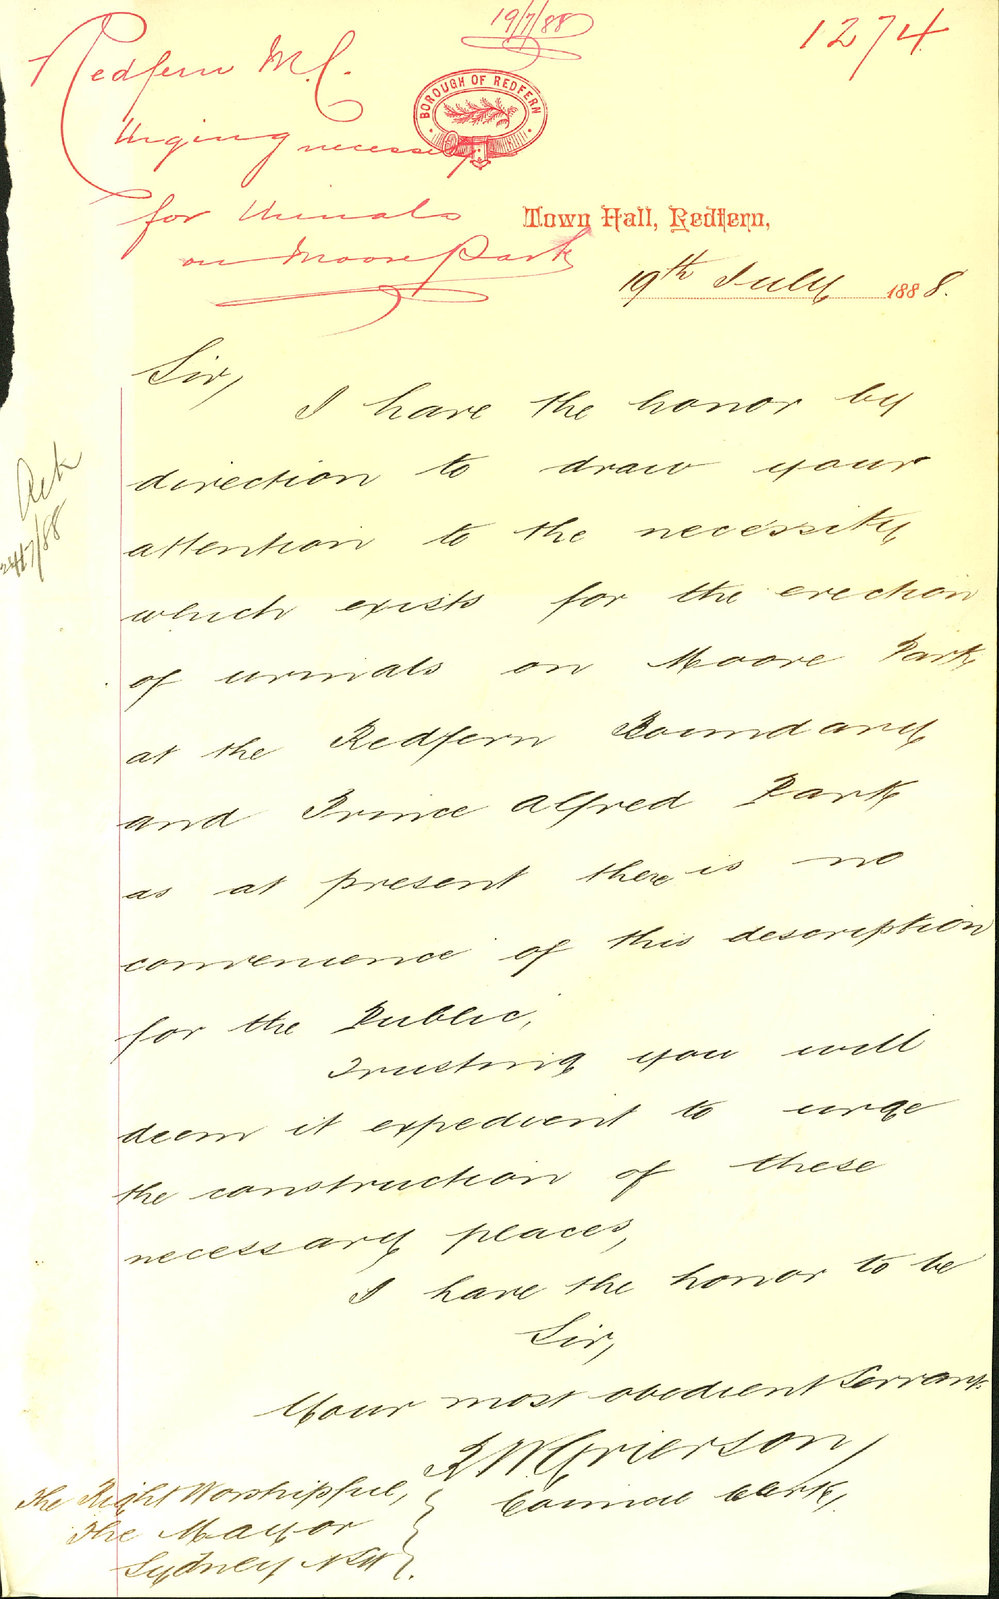 19/7/88
1274
Redfern M.C.
Urging necessity
for Urinals
on Moore Park
BOROUGH OF REDFERN
Town Hall, Redfern,
19th July 1888.
Ack
24/7/88
Sir,
I have the honor by
direction to draw your
attention to the necessity
which exists for the erection
of urinals on Moore Park
at the Redfern Boundary
and Prince Alfred Park
as at present there is no
convenience of this description
for the Public,
Trusting you will
deem it expedient to urge
the construction of these
necessary places,
I have the honor to be
Sir,
Your most obedient Servant.
R W Grierson,
Council Clerk,
The Right Worshipful,
The Mayor
Sydney NSW.